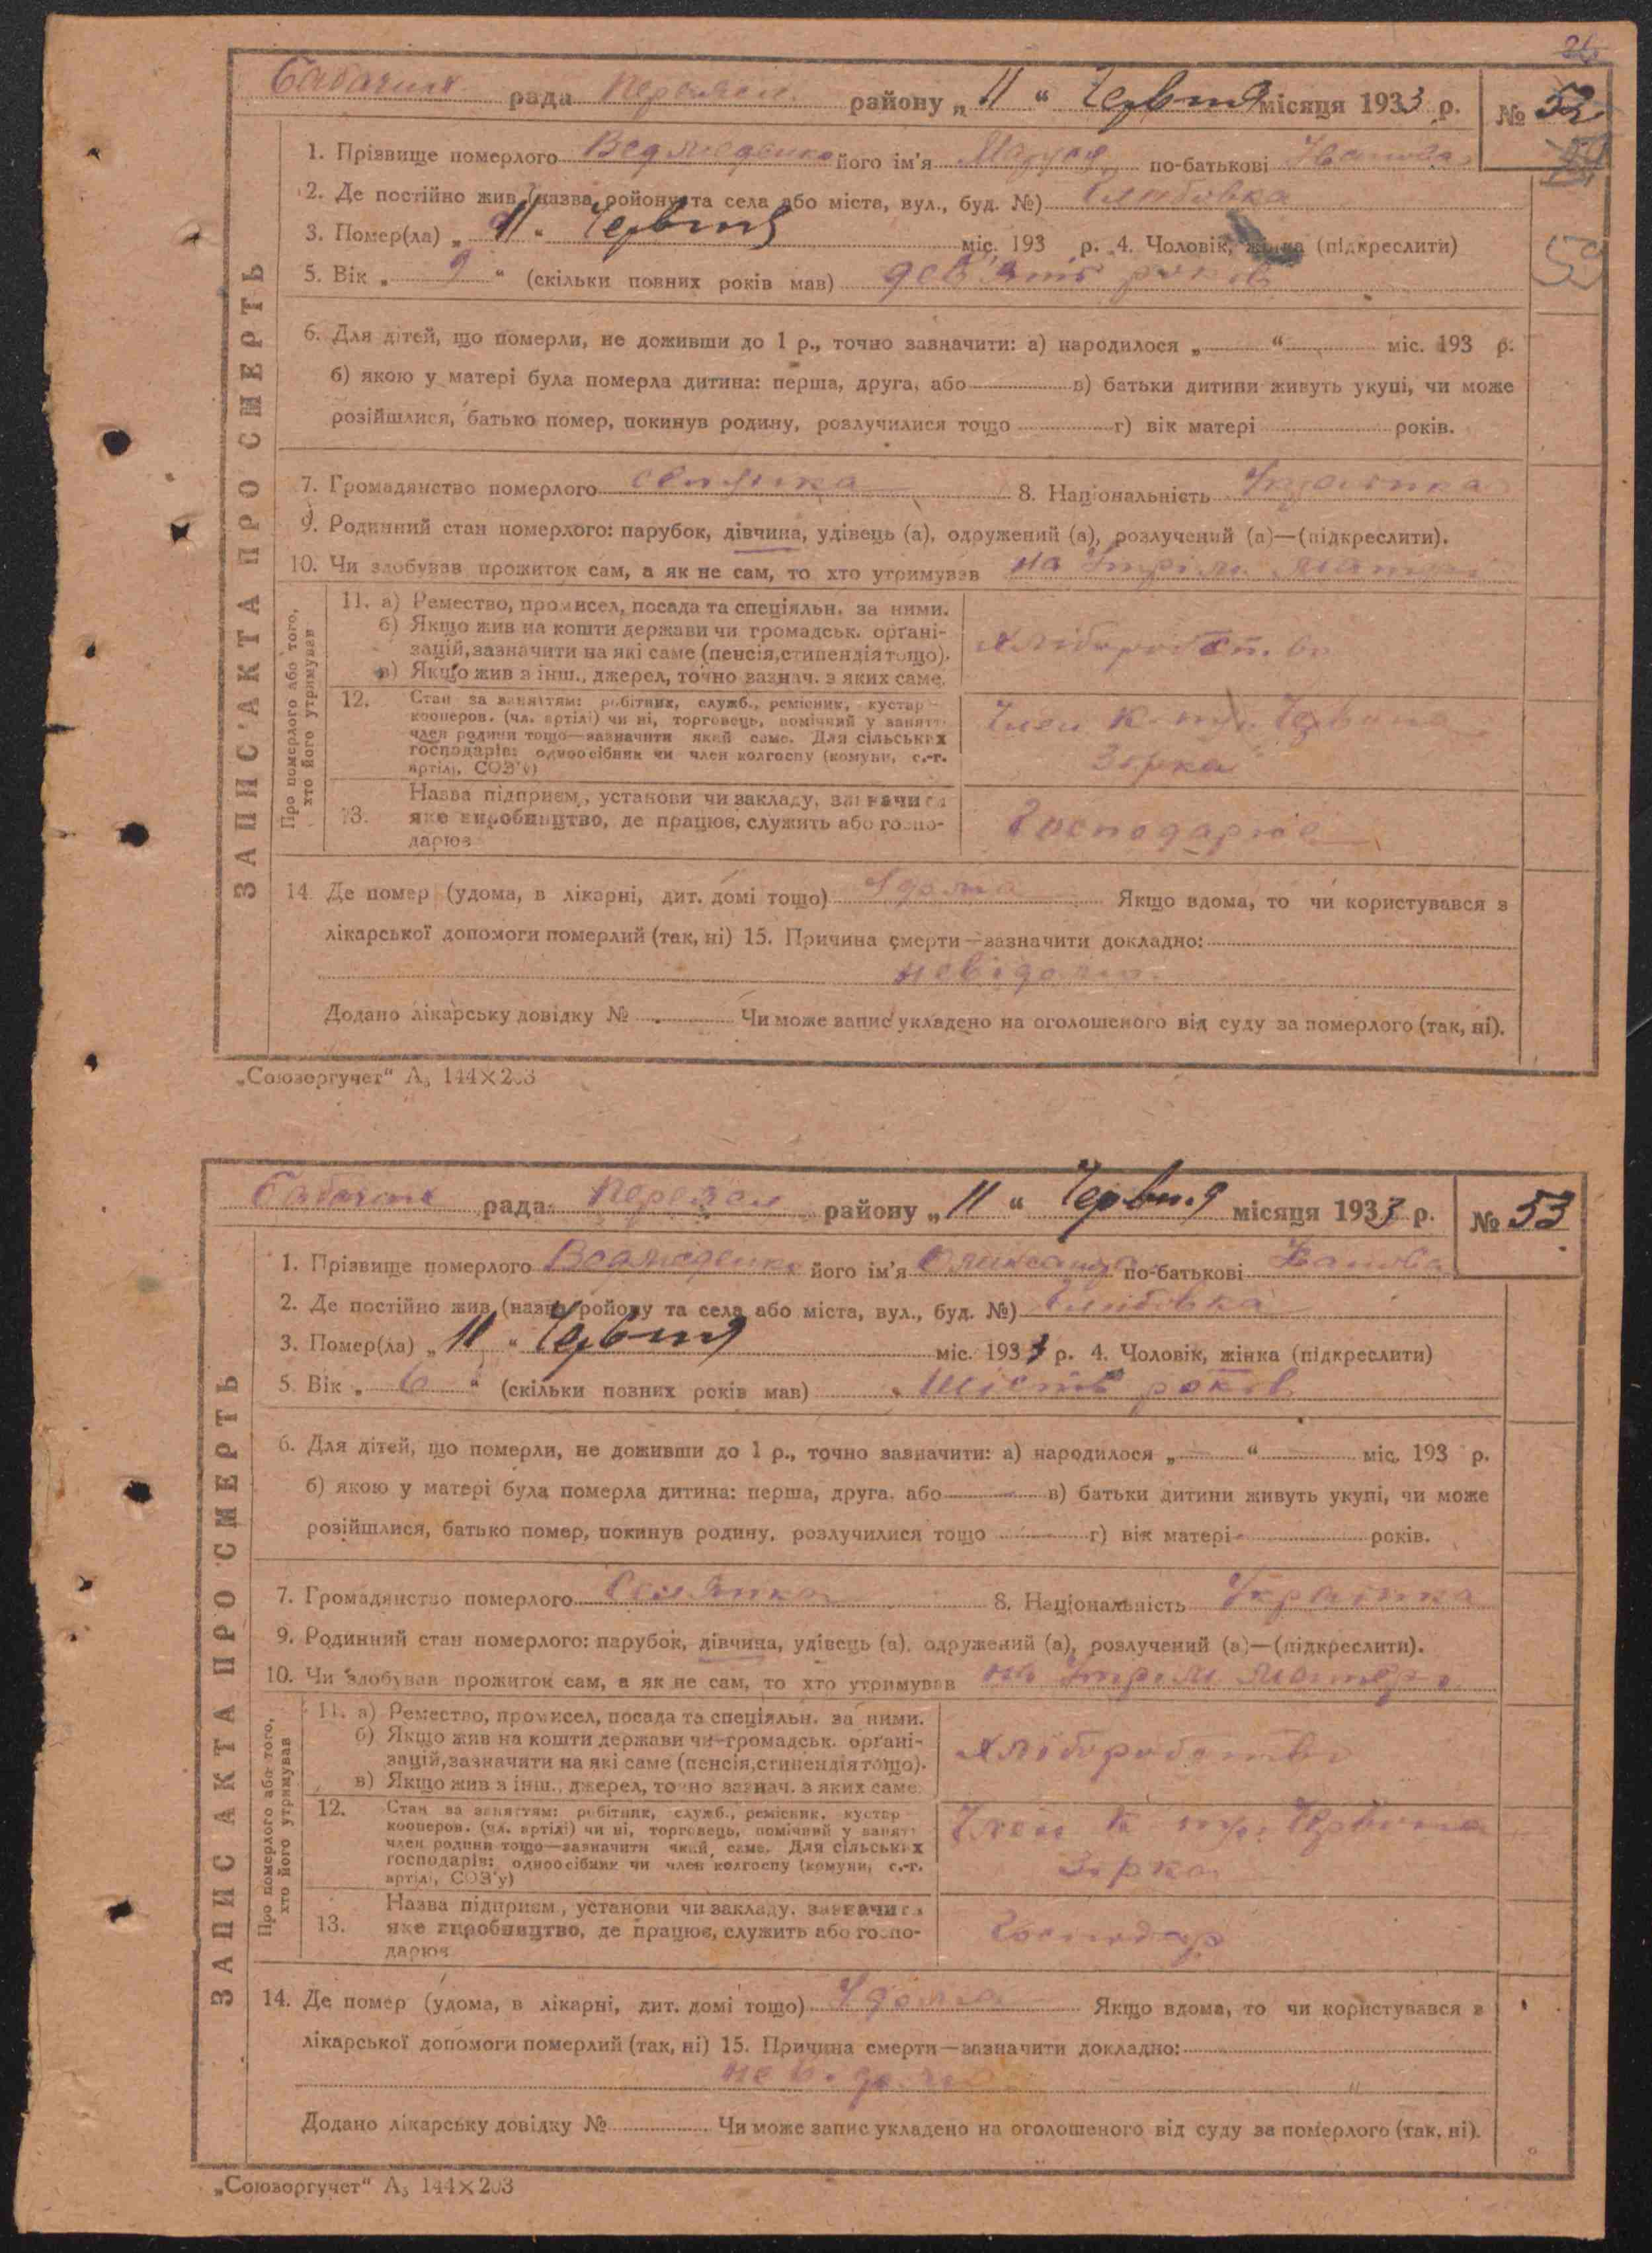 26
рада району „ 11 “ Червня місяця 1933 р. № 52
1. Прізвище померлого Ведмеденко його ім'я Маруся по-батькові Іванова
2. Де постійно жив (назва району та села або міста, вул., буд. №)
3. Помер(ла) „ 11 “ Червня міс. 193 р. 4. Чоловік, жінка (підкреслити)
59
5. Вік „ 9 “ (скільки повних років мав) дев'ять років
6. Для дітей, що померли, не доживши до 1 р., точно зазначити: а) народилося „ “ міс. 193 р.
б) якою у матері була померла дитина: перша, друга, або в) батьки дитини живуть укупі, чи може
розійшлися, батько помер, покинув родину, розлучилися тощо г) вік матері років.
7. Громадянство померлого селянка 8. Національність Українка
9. Родинний стан померлого: парубок, дівчина, удівець (а), одружений (а), розлучений (а)—(підкреслити).
10. Чи здобував прожиток сам, а як не сам, то хто утримував на утрім. матері
ЗАПИС АКТА ПРО СМЕРТЬ
Про померлого або того,
хто його утримував
11. а) Ремество, промисел, посада та спеціяльн. за ними.
б) Якщо жив на кошти держави чи громадськ. орґані-
зацій, зазначити на які саме (пенсія, стипендія тощо).
в) Якщо жив з інш., джерел, точно вазнач. з яких саме.
Хліборобств.во
12. Стан за заняттям: робітник, служб., ремісник, кустар—
кооперов. (чл. артілі) чи ні, торговець, помічний у занятт.
член родини тощо—зазначити який саме. Для сільських
господарів: одноосібник чи член колгоспу (комуни, с.-г.
артілі, СОЗ'у)
Член к. Червона
Зірка
13. Назва підприєм., установи чи закладу, зазначити
яке виробництво, де працює, служить або госпо-
дарює
Господарює
14. Де помер (удома, в лікарні, дит. домі тощо) Удома Якщо вдома, то чи користувався з
лікарської допомоги померлий (так, ні) 15. Причина смерти—зазначити докладно:
невідома
Додано лікарську довідку № Чи може запис укладено на оголошеного від суду за померлого (так, ні).
„Союзоргучет“ А₅ 144×203
рада району „ 11 “ Червня місяця 1933 р. № 53
1. Прізвище померлого Ведмеденко його ім'я Олександра по-батькові Іванова
2. Де постійно жив (назва району та села або міста, вул., буд. №)
3. Помер(ла) „ 11 “ Червня міс. 1933 р. 4. Чоловік, жінка (підкреслити)
5. Вік „ 6 “ (скільки повних років мав) шість років
6. Для дітей, що померли, не доживши до 1 р., точно зазначити: а) народилося „ “ міс. 193 р.
б) якою у матері була померла дитина: перша, друга, або в) батьки дитини живуть укупі, чи може
розійшлися, батько помер, покинув родину, розлучилися тощо г) вік матері років.
7. Громадянство померлого Селянка 8. Національність Українка
9. Родинний стан померлого: парубок, дівчина, удівець (а), одружений (а), розлучений (а)—(підкреслити).
10. Чи здобував прожиток сам, а як не сам, то хто утримував на утрім матері
ЗАПИС АКТА ПРО СМЕРТЬ
Про померлого або того,
хто його утримував
11. а) Ремество, промисел, посада та спеціяльн. за ними.
б) Якщо жив на кошти держави чи громадськ. орґані-
зацій, зазначити на які саме (пенсія, стипендія тощо).
в) Якщо жив з інш., джерел, точно вазнач. з яких саме.
Хліборобство
12. Стан за заняттям: робітник, служб., ремісник, кустар—
кооперов. (чл. артілі) чи ні, торговець, помічний у занятт.
член родини тощо—зазначити який саме. Для сільських
господарів: одноосібник чи член колгоспу (комуни, с.-г.
артілі, СОЗ'у)
Член к Червона
Зірка
13. Назва підприєм., установи чи закладу, зазначити
яке виробництво, де працює, служить або госпо-
дарює
Господар
14. Де помер (удома, в лікарні, дит. домі тощо) Удома Якщо вдома, то чи користувався з
лікарської допомоги померлий (так, ні) 15. Причина смерти—зазначити докладно:
невідома
Додано лікарську довідку № Чи може запис укладено на оголошеного від суду за померлого (так, ні).
„Союзоргучет“ А₅ 144×203